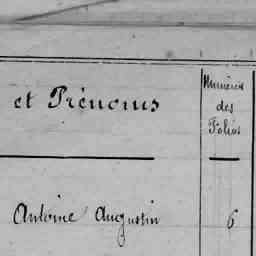 et Prénoms
Numéros
des
Folios
Antoine Augustin
6